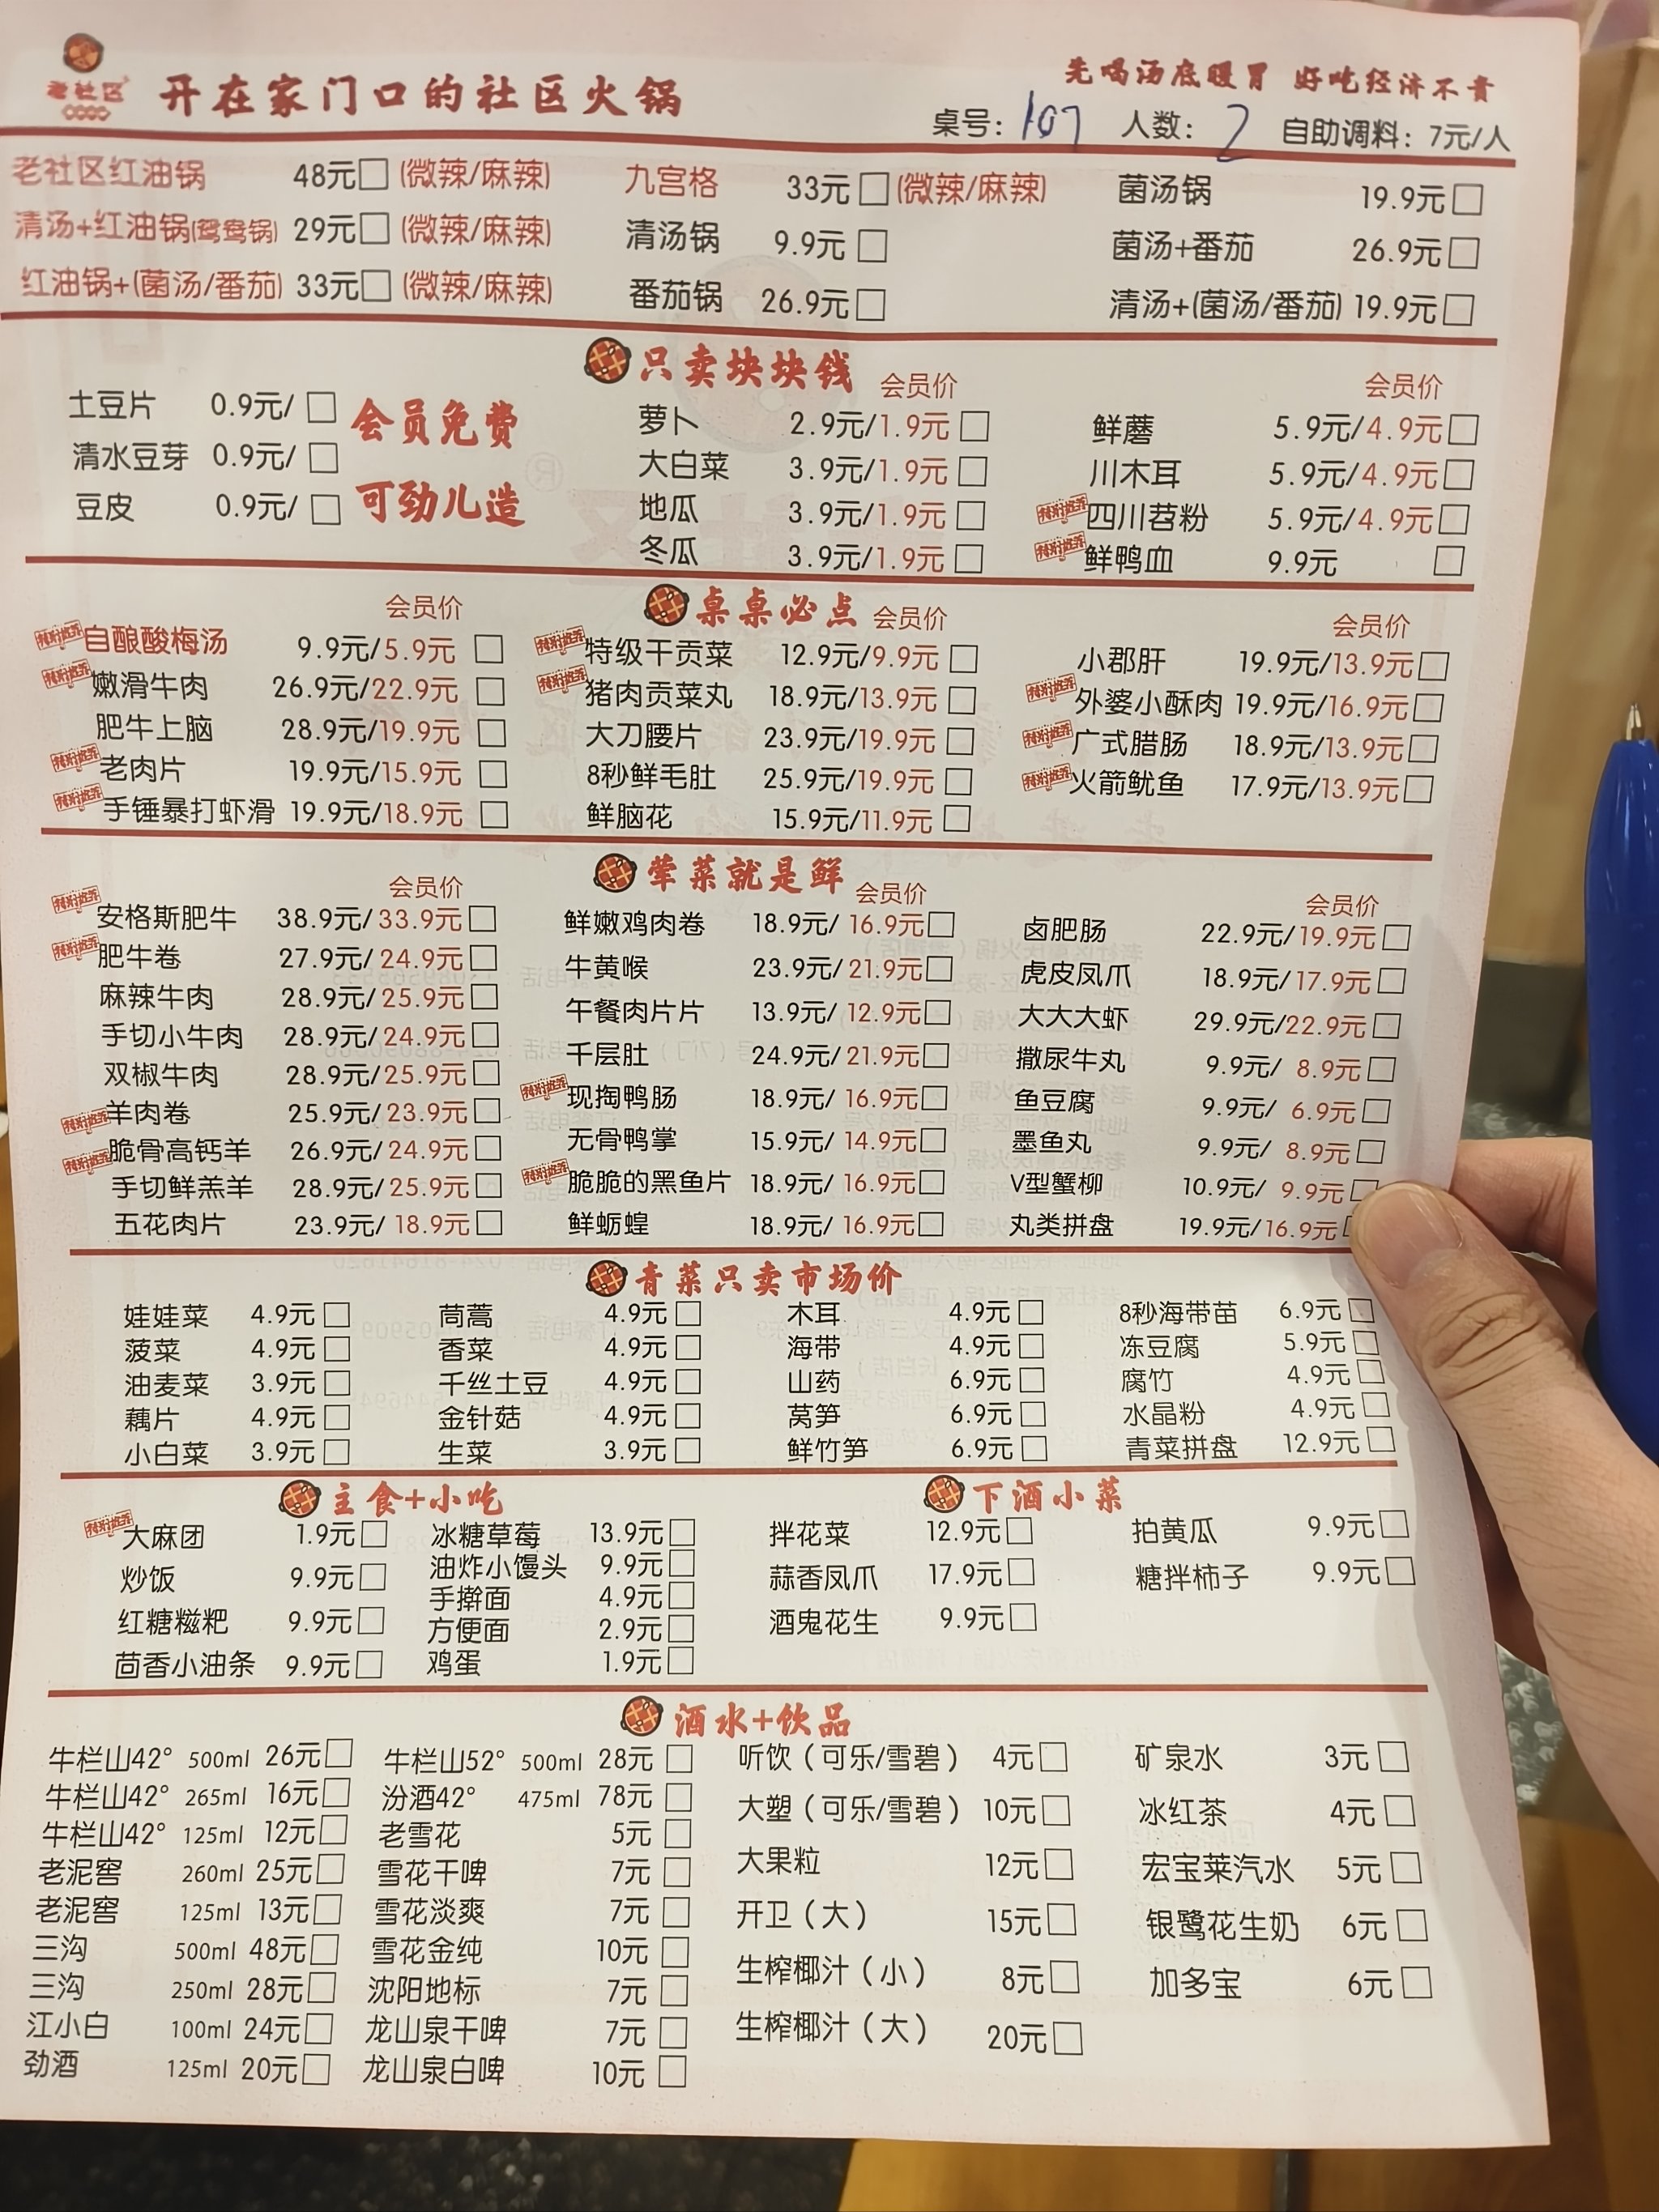 老社区 开在家门口的社区火锅
先喝汤底暖胃 好吃经济不贵
桌号：107 人数：2 自助调料：7元/人
老社区红油锅 48元□ (微辣/麻辣) 九宫格 33元□ (微辣/麻辣) 菌汤锅 19.9元□
清汤+红油锅(鸳鸯锅) 29元□ (微辣/麻辣) 清汤锅 9.9元□ 菌汤+番茄 26.9元□
红油锅+(菌汤/番茄) 33元□ (微辣/麻辣) 番茄锅 26.9元□ 清汤+(菌汤/番茄) 19.9元□
只卖块块钱 会员价 会员价
土豆片 0.9元/ □ 会员免费 萝卜 2.9元/1.9元□ 鲜蘑 5.9元/4.9元□
清水豆芽 0.9元/ □ 大白菜 3.9元/1.9元□ 川木耳 5.9元/4.9元□
豆皮 0.9元/ □ 可劲儿造 地瓜 3.9元/1.9元□ 特别推荐 四川苕粉 5.9元/4.9元□
冬瓜 3.9元/1.9元□ 特别推荐 鲜鸭血 9.9元 □
会员价 桌桌必点 会员价 会员价
特别推荐 自酿酸梅汤 9.9元/5.9元□ 特别推荐 特级干贡菜 12.9元/9.9元□ 小郡肝 19.9元/13.9元□
特别推荐 嫩滑牛肉 26.9元/22.9元□ 特别推荐 猪肉贡菜丸 18.9元/13.9元□ 特别推荐 外婆小酥肉 19.9元/16.9元□
肥牛上脑 28.9元/19.9元□ 大刀腰片 23.9元/19.9元□ 特别推荐 广式腊肠 18.9元/13.9元□
特别推荐 老肉片 19.9元/15.9元□ 8秒鲜毛肚 25.9元/19.9元□ 特别推荐 火箭鱿鱼 17.9元/13.9元□
特别推荐 手锤暴打虾滑 19.9元/18.9元□ 鲜脑花 15.9元/11.9元□
会员价 荤菜就是鲜 会员价 会员价
特别推荐 安格斯肥牛 38.9元/33.9元□ 鲜嫩鸡肉卷 18.9元/16.9元□ 卤肥肠 22.9元/19.9元□
特别推荐 肥牛卷 27.9元/24.9元□ 牛黄喉 23.9元/21.9元□ 虎皮凤爪 18.9元/17.9元□
麻辣牛肉 28.9元/25.9元□ 午餐肉片片 13.9元/12.9元□ 大大大虾 29.9元/22.9元□
手切小牛肉 28.9元/24.9元□ 千层肚 24.9元/21.9元□ 撒尿牛丸 9.9元/8.9元□
双椒牛肉 28.9元/25.9元□ 特别推荐 现掏鸭肠 18.9元/16.9元□ 鱼豆腐 9.9元/6.9元□
特别推荐 羊肉卷 25.9元/23.9元□ 无骨鸭掌 15.9元/14.9元□ 墨鱼丸 9.9元/8.9元□
特别推荐 脆骨高钙羊 26.9元/24.9元□ 特别推荐 脆脆的黑鱼片 18.9元/16.9元□ V型蟹柳 10.9元/9.9元□
手切鲜羔羊 28.9元/25.9元□ 鲜蛎蝗 18.9元/16.9元□ 丸类拼盘 19.9元/16.9元□
五花肉片 23.9元/18.9元□
青菜只卖市场价
娃娃菜 4.9元□ 茼蒿 4.9元□ 木耳 4.9元□ 8秒海带苗 6.9元□
菠菜 4.9元□ 香菜 4.9元□ 海带 4.9元□ 冻豆腐 5.9元□
油麦菜 3.9元□ 千丝土豆 4.9元□ 山药 6.9元□ 腐竹 4.9元□
藕片 4.9元□ 金针菇 4.9元□ 莴笋 6.9元□ 水晶粉 4.9元□
小白菜 3.9元□ 生菜 3.9元□ 鲜竹笋 6.9元□ 青菜拼盘 12.9元□
主食+小吃 下酒小菜
特别推荐 大麻团 1.9元□ 冰糖草莓 13.9元□ 拌花菜 12.9元□ 拍黄瓜 9.9元□
炒饭 9.9元□ 油炸小馒头 9.9元□ 蒜香凤爪 17.9元□ 糖拌柿子 9.9元□
手擀面 4.9元□
红糖糍粑 9.9元□ 方便面 2.9元□ 酒鬼花生 9.9元□
茴香小油条 9.9元□ 鸡蛋 1.9元□
酒水+饮品
牛栏山42° 500ml 26元□ 牛栏山52° 500ml 28元□ 听饮（可乐/雪碧） 4元□ 矿泉水 3元□
牛栏山42° 265ml 16元□ 汾酒42° 475ml 78元□ 大塑（可乐/雪碧） 10元□ 冰红茶 4元□
牛栏山42° 125ml 12元□ 老雪花 5元□ 大果粒 12元□ 宏宝莱汽水 5元□
老泥窖 260ml 25元□ 雪花干啤 7元□ 开卫（大） 15元□ 银鹭花生奶 6元□
老泥窖 125ml 13元□ 雪花淡爽 7元□ 生榨椰汁（小） 8元□ 加多宝 6元□
三沟 500ml 48元□ 雪花金纯 10元□ 生榨椰汁（大） 20元□
三沟 250ml 28元□ 沈阳地标 7元□
江小白 100ml 24元□ 龙山泉干啤 7元□
劲酒 125ml 20元□ 龙山泉白啤 10元□